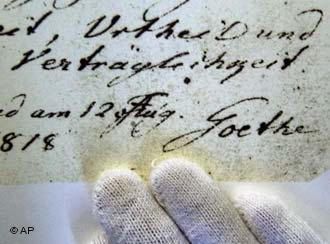 eit, Urtheil und
Verträglichkeit
d am 12 Aug.
1818 Goethe
© AP